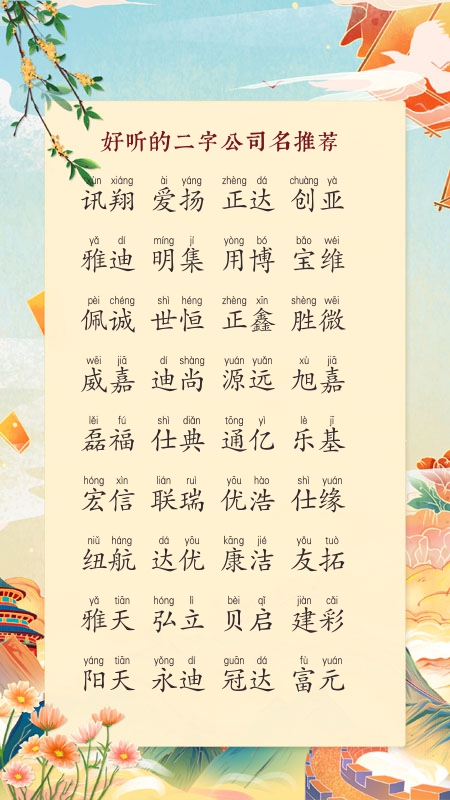 好听的二字公司名推荐
xùn xiáng ài yáng zhèng dá chuàng yà
讯翔 爱扬 正达 创亚
yǎ dí míng jí yòng bó bǎo wéi
雅迪 明集 用博 宝维
pèi chéng shì héng zhèng xīn shèng wēi
佩诚 世恒 正鑫 胜微
wēi jiā dí shàng yuán yuǎn xù jiā
威嘉 迪尚 源远 旭嘉
lěi fú shì diǎn tōng yì lè jī
磊福 仕典 通亿 乐基
hóng xìn lián ruì yōu hào shì yuán
宏信 联瑞 优浩 仕缘
niǔ háng dá yōu kāng jié yǒu tuò
纽航 达优 康洁 友拓
yǎ tiān hóng lì bèi qǐ jiàn cǎi
雅天 弘立 贝启 建彩
yáng tiān yǒng dí guān dá fù yuán
阳天 永迪 冠达 富元